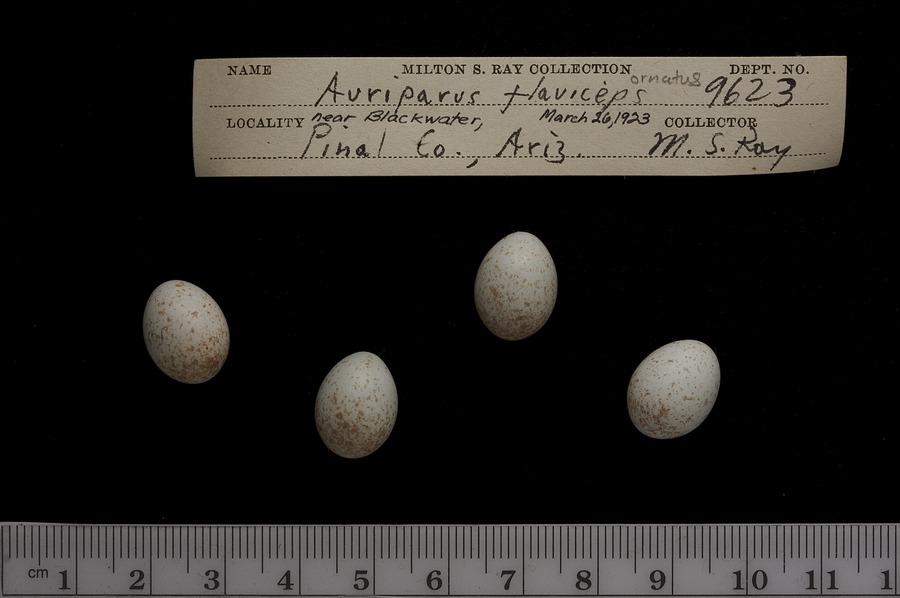 NAME MILTON S. RAY COLLECTION DEPT. NO.
Auriparus flaviceps ornatus 9623
LOCALITY near Blackwater, March 26, 1923 COLLECTOR
Pinal Co., Ariz. M. S. Ray
cm 1 2 3 4 5 6 7 8 9 10 11 1